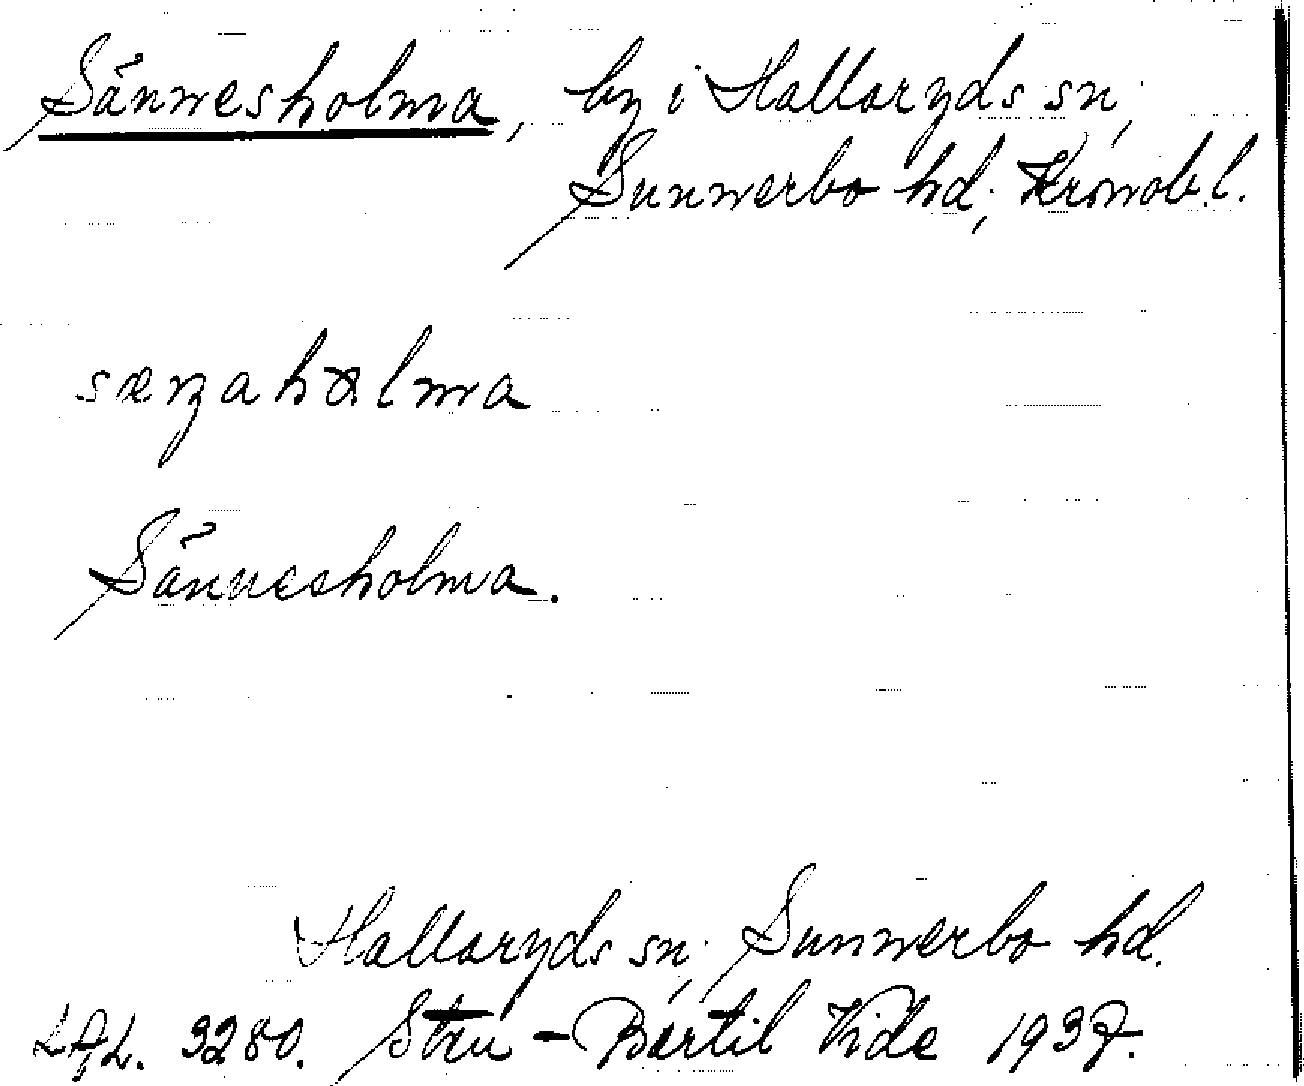 Sännesholma, by i Hallaryds sn,
Sunnerbo hd, Kronob.l.
Sännesholma.
Hallaryds sn, Sunnerbo hd.
3280. Sten-Bertil Vide 1937.